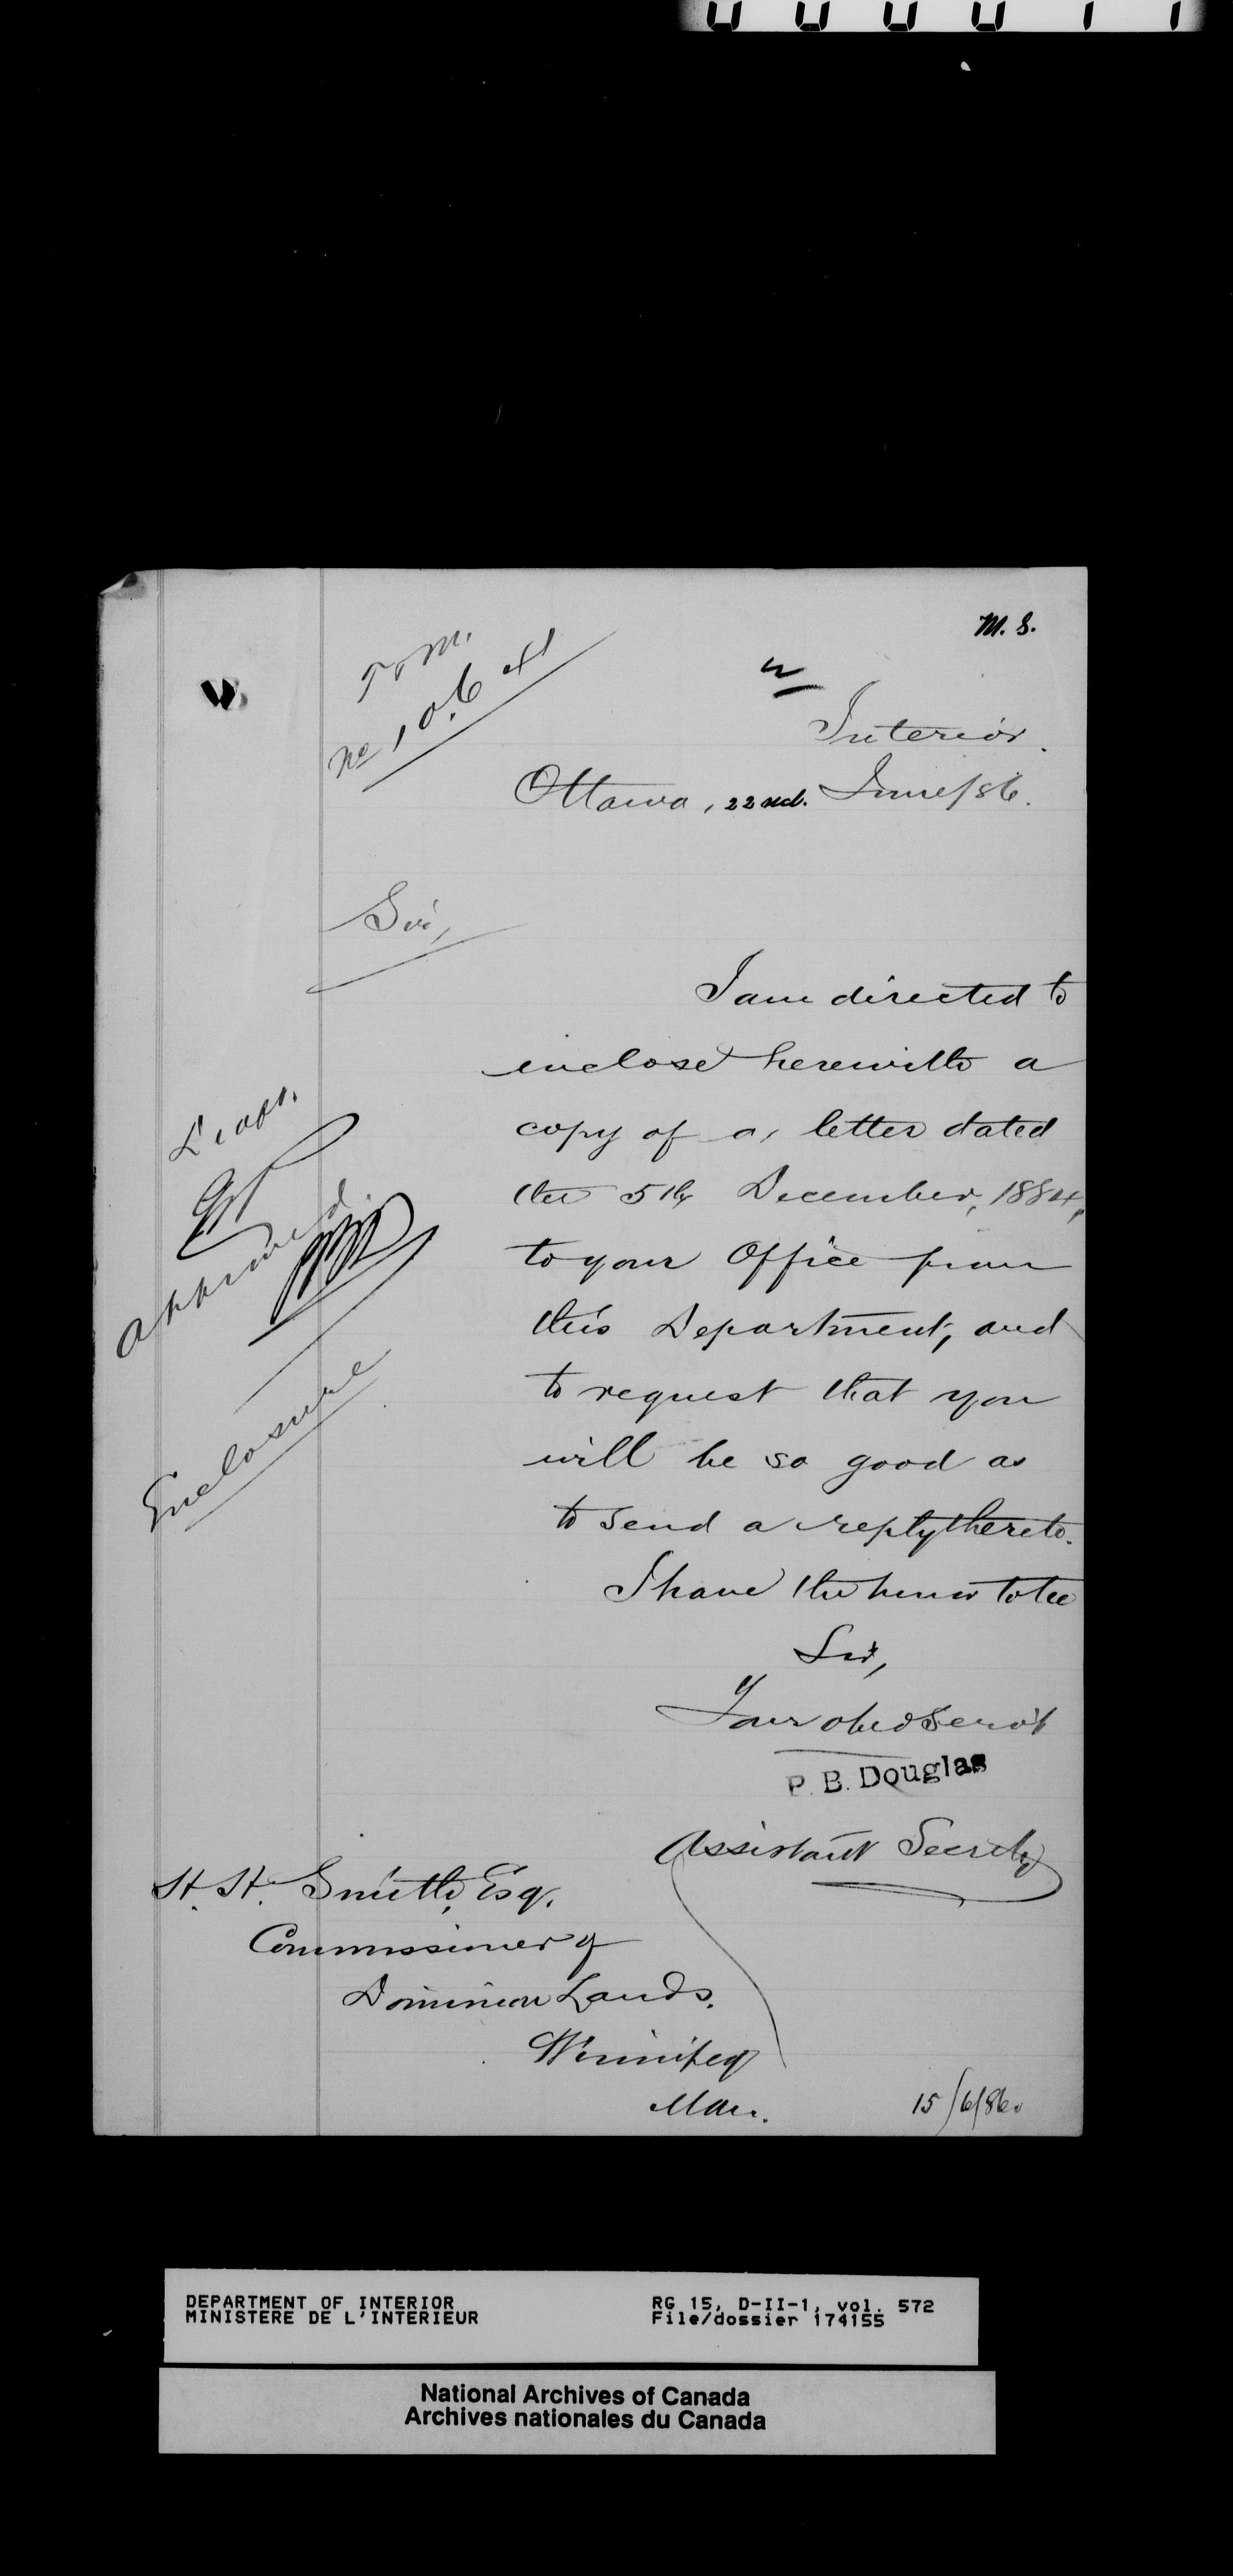 M. S.
T & M.
No 1 0.6
Interior.
Ottawa, 22nd. June/86.
Sir,
I am directed to
enclose herewith a
copy of a, letter dated
the 5th December, 1884,
to your Office from
this Department, and
to request that you
will be so good as
to send a reply thereto.
I have the honor to be
Sir,
Your obed Serv't
P. B. Douglas
Assistant Secrety
approved.
Enclosure
H. H. Smith, Esq.
Commissioner of
Dominion Lands.
Winnipeg
Man.
15/6/86.
DEPARTMENT OF INTERIOR
MINISTERE DE L'INTERIEUR
RG 15, D-II-1, vol. 572
File/dossier 174155
National Archives of Canada
Archives nationales du Canada